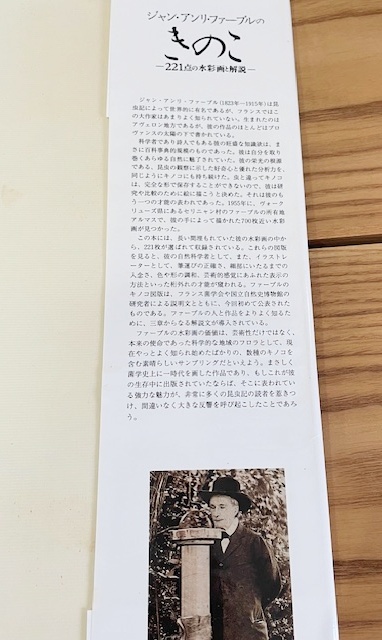 ジャン・アンリ・ファーブルの
きのこ
―221点の水彩画と解説―
ジャン・アンリ・ファーブル(1823年―1915年)は昆
虫記によって世界的に有名であるが、フランスではこ
の大作家はあまりよく知られていない。生まれたのは
アヴェロン地方であるが、彼の作品のほとんどはプロ
ヴァンスの太陽の下で書かれている。
科学者であり詩人でもある彼の旺盛な知識欲は、ま
さに百科事典的規模のものであった。彼は自分を取り
巻くあらゆる自然に魅了されていた。彼の栄光の根源
である、昆虫の観察に示した好奇心と優れた分析力を、
同じようにキノコにも持ち続けた。虫と違ってキノコ
は、完全な形で保存することができないので、彼は研
究や比較のために絵に描こうと決めた。それは彼のも
う一つの才能の表われであった。1955年に、ヴォーク
リューズ県にあるセリニャン村のファーブルの所有地
アルマスで、彼の手によって描かれた700枚近い水彩
画が見つかった。
この本には、長い間埋もれていた彼の水彩画の中か
ら、221枚が選ばれて収録されている。これらの図版
を見ると、彼の自然科学者として、また、イラストレ
ーターとして、筆運びの正確さ、細部にいたるまでの
入念さ、色や形の調和、芸術的感覚にあふれた表示の
方法といった桁外れの才能が窺われる。ファーブルの
キノコ図版は、フランス菌学会や国立自然史博物館の
研究者による説明文とともに、今回初めて公表された
ものである。ファーブルの人と作品をよりよく知るた
めに、三章からなる解説文が導入されている。
ファーブルの水彩画の価値は、芸術性だけではなく、
本来の使命であった科学的な地域のフロラとして、現
在やっとよく知られ始めたばかりの、数種のキノコを
含む素晴らしいサンプリングだといえよう。まさしく
菌学史上に一時代を画した作品であり、もしこれが彼
の生存中に出版されていたならば、そこに表われてい
る強力な魅力が、非常に多くの昆虫記の読者を惹きつ
け、間違いなく大きな反響を呼び起こしたことであろ
う。